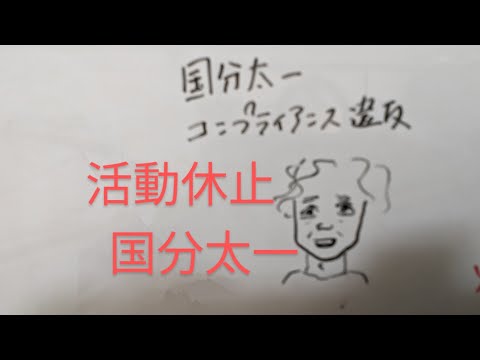 国分太一
コンプライアンス違反
活動休止
国分太一